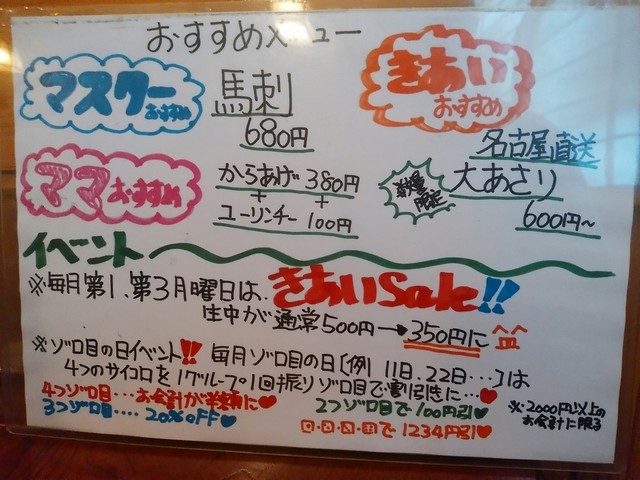 おすすめメニュー
マスターおすすめ
馬刺
680円
きあいおすすめ
名古屋直送
ママおすすめ
からあげ 380円
+ +
ユーリンチー 100円
数量限定
大あさり
600円~
イベント
※毎月第1、第3月曜日は、きあいSale!!
生中が通常500円→350円に^^
※ゾロ目の日イベント!! 毎月ゾロ目の日〔例 11日、22日…〕は
4つのサイコロを1グループ1回振りゾロ目で割引きに…♥
4つゾロ目…お会計が半額に♥
2つゾロ目で100円引♥
※2000円以上の
お会計に限る
3つゾロ目‥‥20%OFF♥
で1234円引♥